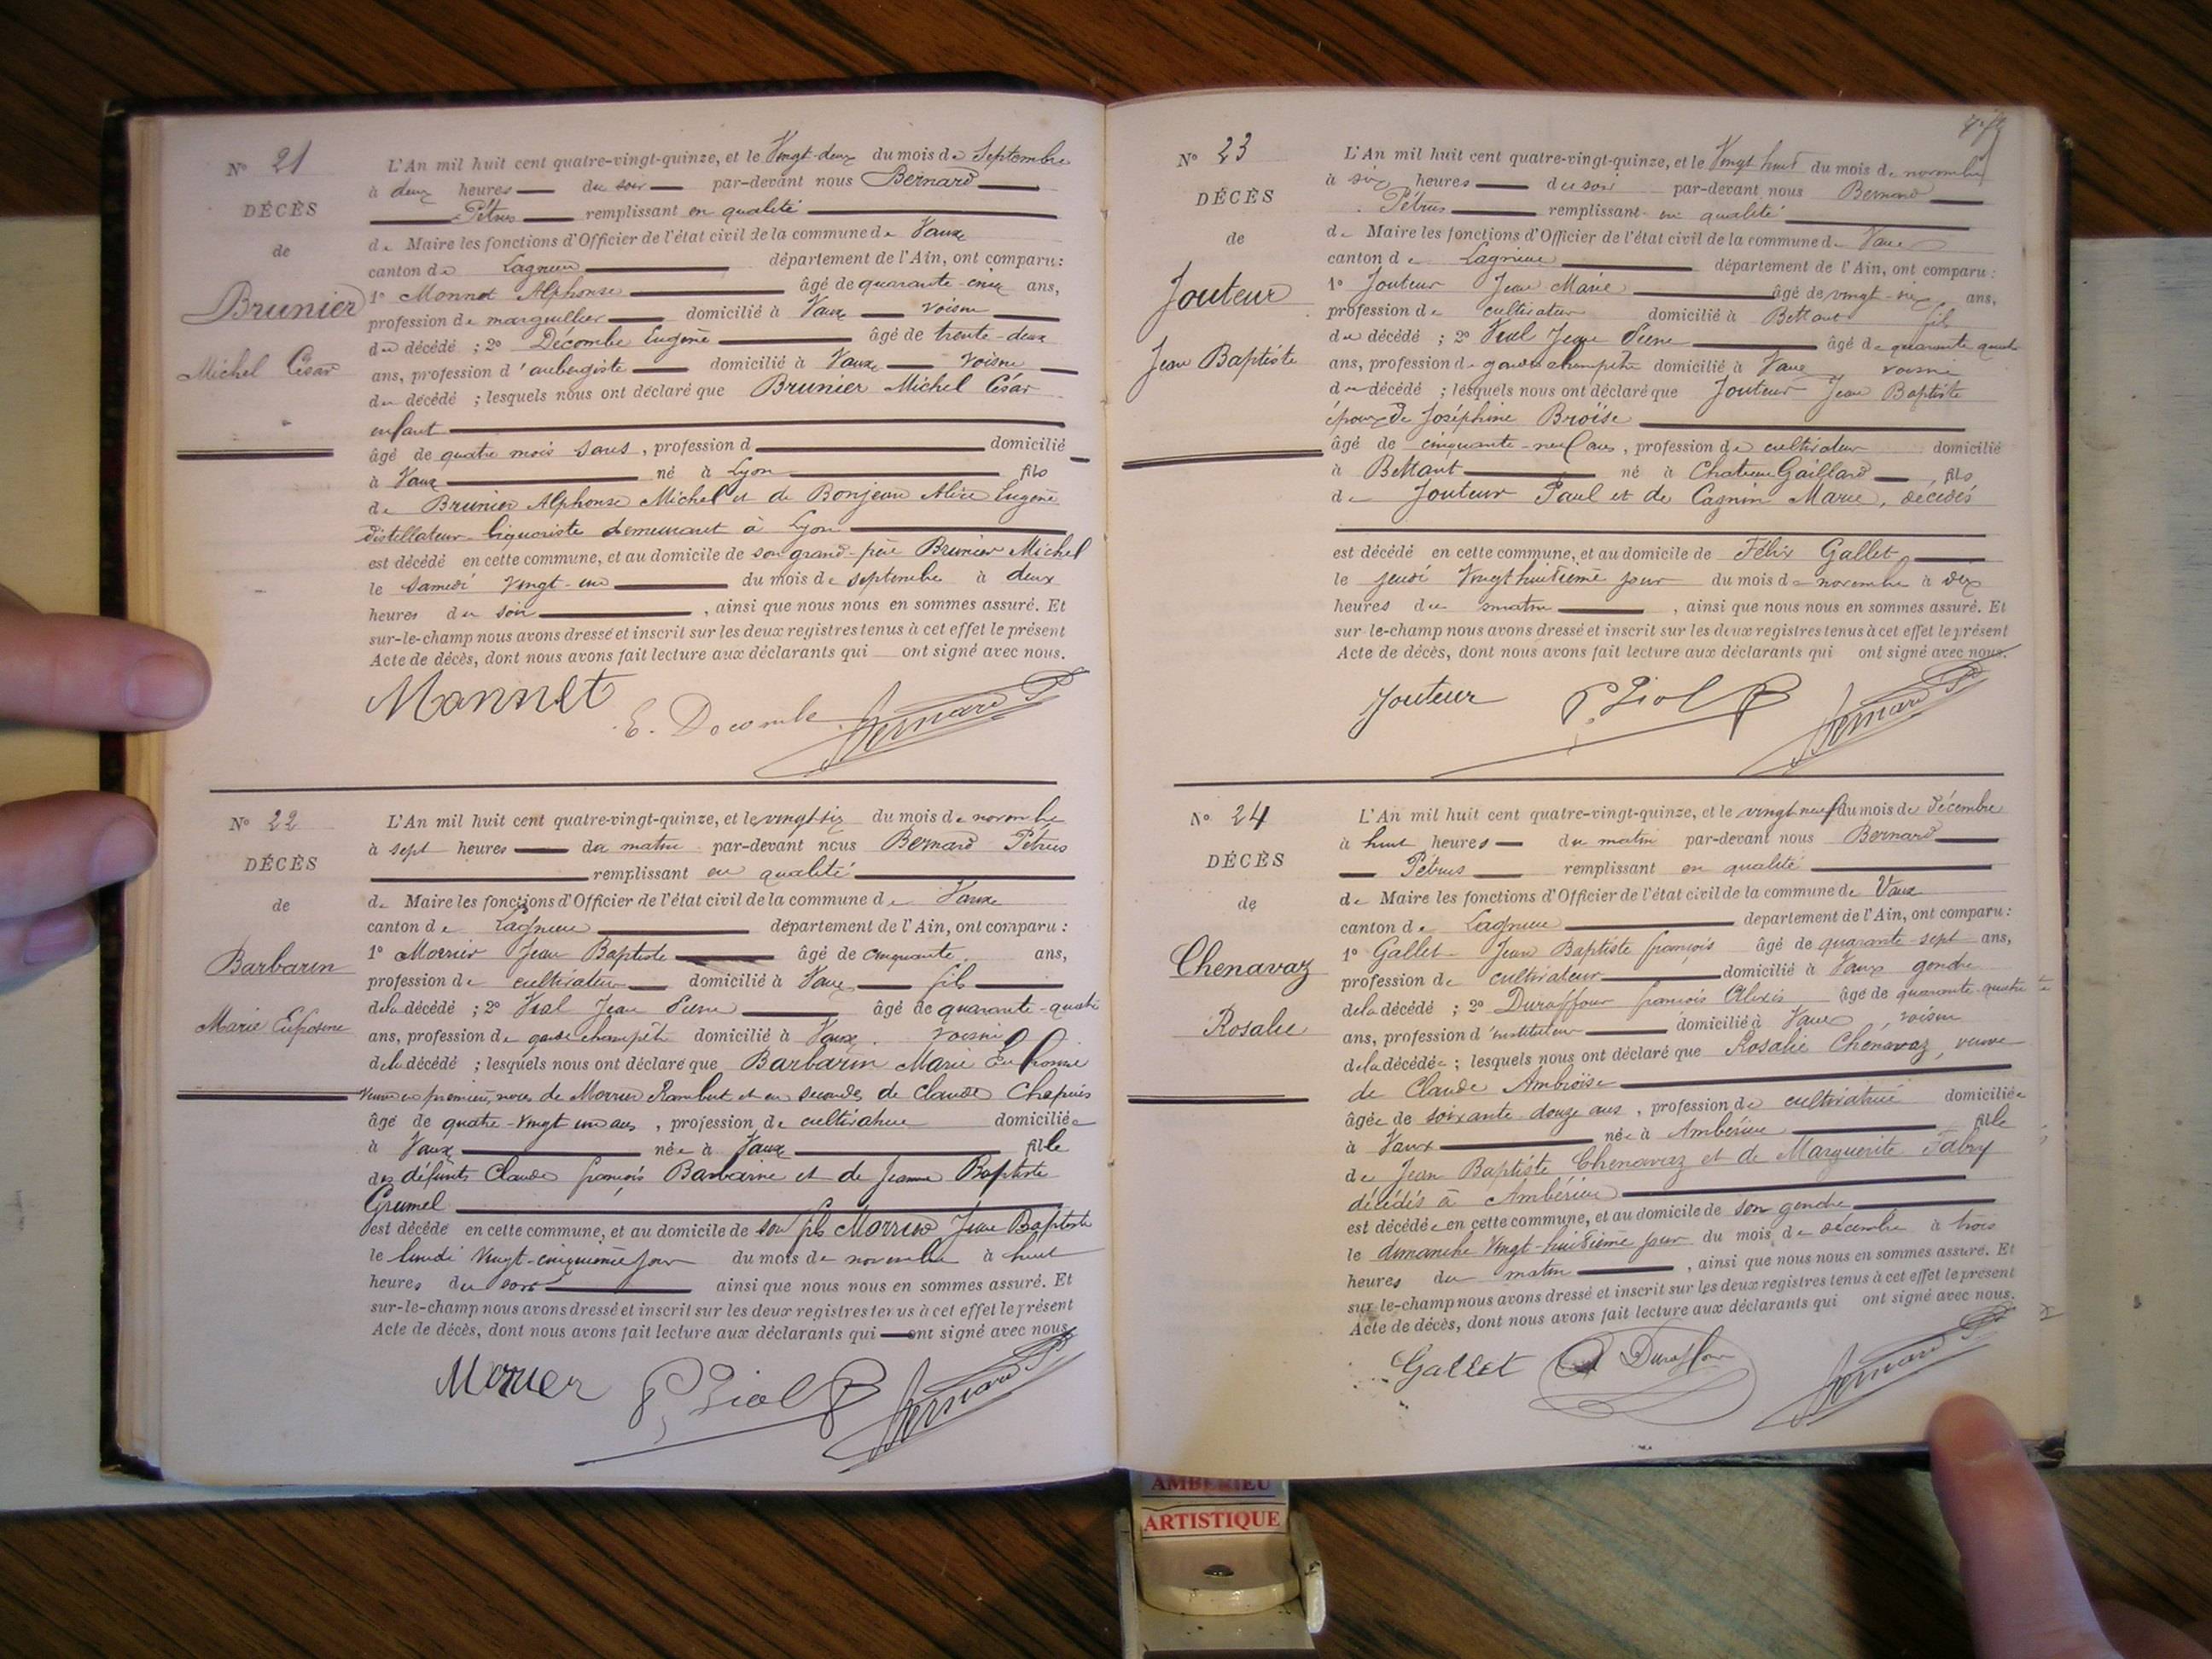 N° 21
DÉCÈS
de
Brunier
Michel César
L'An mil huit cent quatre-vingt-quinze, et le Vingt-deux du mois de Septembre
à deux heures du soir par-devant nous Bernard
Pétrus remplissant en qualité
de Maire les fonctions d'Officier de l'état civil de la commune de Vaux
canton de Lagnieu département de l'Ain, ont comparu:
1° Monnet Alphonse âgé de quarante-cinq ans,
profession de marguillier domicilié à Vaux voisin
du décédé ; 2° Décombe Eugène âgé de trente-deux
ans, profession d'aubergiste domicilié à Vaux voisin
du décédé ; lesquels nous ont déclaré que Brunier Michel César
enfant
âgé de quatre mois sans, profession d domicilié
à Vaux né à Lyon fils
de Brunier Alphonse Michel et de Bonjean Alice Eugène
distillateur-liquoriste demeurant à Lyon
est décédé en cette commune, et au domicile de son grand-père Brunier Michel
le samedi vingt-un du mois de septembre à deux
heures du soir, ainsi que nous nous en sommes assuré. Et
sur-le-champ nous avons dressé et inscrit sur les deux registres tenus à cet effet le présent
Acte de décès, dont nous avons fait lecture aux déclarants qui ont signé avec nous.
Monnet E. Decombe Bernard P
N° 22
DÉCÈS
de
Barbarin
Marie
L'An mil huit cent quatre-vingt-quinze, et le vingt-six du mois de novembre
à sept heures du matin par-devant nous Bernard Pétrus
remplissant en qualité
de Maire les fonctions d'Officier de l'état civil de la commune de Vaux
canton de Lagnieu département de l'Ain, ont comparu :
1° Morrier Jean Baptiste âgé de cinquante ans,
profession de cultivateur domicilié à Vaux fils
de la décédé ; 2° Vial Jean Pierre âgé de quarante-quatre
ans, profession de garde champêtre domicilié à Vaux voisin
de la décédé ; lesquels nous ont déclaré que Barbarin Marie
veuve en premières noces de Morrier Rambert et en secondes de Claude Chapuis
âgé de quatre-vingt un ans, profession de cultivatrice domiciliée
à Vaux née à Vaux fille
des défunts Claude françois Barbarin et de Jeanne Baptiste
Grumel
est décédé en cette commune, et au domicile de son fils Morrier Jean Baptiste
le lundi vingt-cinquième jour du mois de novembre à huit
heures du soir ainsi que nous nous en sommes assuré. Et
sur-le-champ nous avons dressé et inscrit sur les deux registres tenus à cet effet le présent
Acte de décès, dont nous avons fait lecture aux déclarants qui ont signé avec nous.
Morrier P. Vial Bernard P
N° 23
DÉCÈS
de
Jouteur
Jean Baptiste
L'An mil huit cent quatre-vingt-quinze, et le Vingt huit du mois de novembre
à six heures du soir par-devant nous Bernard
Pétrus remplissant en qualité
de Maire les fonctions d'Officier de l'état civil de la commune de Vaux
canton de Lagnieu département de l'Ain, ont comparu :
1° Jouteur Jean Marie âgé de vingt-six ans,
profession de cultivateur domicilié à Bettant fils
du décédé ; 2° Vial Jean Pierre âgé de quarante quatre
ans, profession de garde champêtre domicilié à Vaux voisin
du décédé ; lesquels nous ont déclaré que Jouteur Jean Baptiste
époux de Joséphine Broïse
âgé de cinquante-neuf ans, profession de cultivateur domicilié
à Bettant né à Chateau Gaillard, fils
de Jouteur Paul et de Cagnin Marie, décédés
est décédé en cette commune, et au domicile de Félix Gallet
le jeudi Vingt huitième jour du mois de novembre à dix
heures du matin, ainsi que nous nous en sommes assuré. Et
sur-le-champ nous avons dressé et inscrit sur les deux registres tenus à cet effet le présent
Acte de décès, dont nous avons fait lecture aux déclarants qui ont signé avec nous.
Jouteur P. Vial Bernard P
N° 24
DÉCÈS
de
Chenavaz
Rosalie
L'An mil huit cent quatre-vingt-quinze, et le vingt neuf du mois de Décembre
à huit heures du matin par-devant nous Bernard
Pétrus remplissant en qualité
de Maire les fonctions d'Officier de l'état civil de la commune de Vaux
canton de Lagnieu département de l'Ain, ont comparu :
1° Gallet Jean Baptiste françois âgé de quarante-sept ans,
profession de cultivateur domicilié à Vaux gendre
de la décédé ; 2° Duraffour françois Alexis âgé de quarante-quatre
ans, profession d'instituteur domicilié à Vaux, voisin
de la décédée ; lesquels nous ont déclaré que Rosalie Chenavaz, veuve
de Claude Ambroise
âgée de soixante-douze ans, profession de cultivatrice domiciliée
à Vaux née à Ambérieu fille
de Jean Baptiste Chenavaz et de Marguerite Fabry
décédés à Ambérieu
est décédée en cette commune, et au domicile de son gendre
le dimanche Vingt-huitième jour du mois de décembre à trois
heures du matin, ainsi que nous nous en sommes assuré. Et
sur-le-champ nous avons dressé et inscrit sur les deux registres tenus à cet effet le présent
Acte de décès, dont nous avons fait lecture aux déclarants qui ont signé avec nous.
Gallet A Duraffour Bernard P
AMBERIEU
ARTISTIQUE